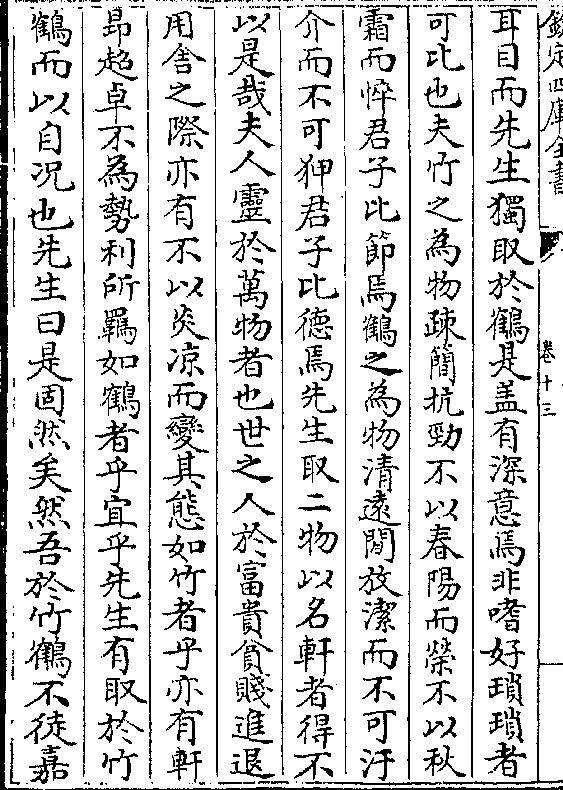 欽定四庫全書
卷十三
耳目而先生獨取於鶴是盖有深意焉非嗜好瑣瑣者
可比也夫竹之為物疎簡抗勁不以春陽而榮不以秋
霜而悴君子比節焉鶴之為物清遠閒放潔而不可汙
介而不可狎君子比德焉先生取二物以名軒者得不
以是哉夫人靈於萬物者也世之人於富貴貧賤進退
用舍之際亦有不以炎凉而變其態如竹者乎亦有軒
昻超卓不為勢利所羈如鶴者乎宜乎先生有取於竹
鶴而以自况也先生曰是固然矣然吾於竹鶴不徒嘉